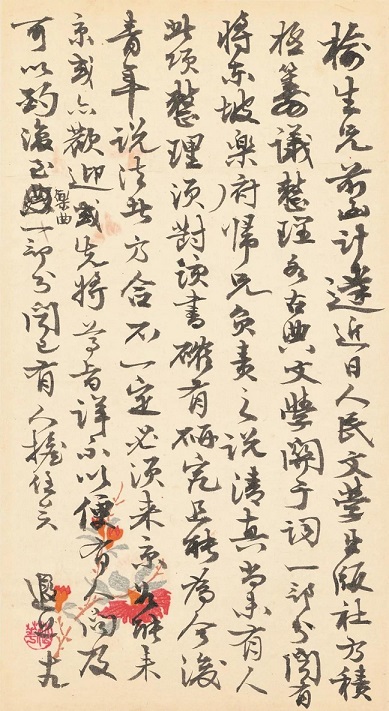 榆生兄前函计达近日人民文学出版社方积
极筹议整理各古典文学关于词一部分闻有
将东坡乐府归兄负责之说清真尚未有人
此项整理须对该书确有研究且能为今后
青年说法此方合不一定必须来京如能来
京或亦欢迎或先将尊旨详示以便有人问及
可以酌复至乐曲一部分闻已有人担任矣
退 九